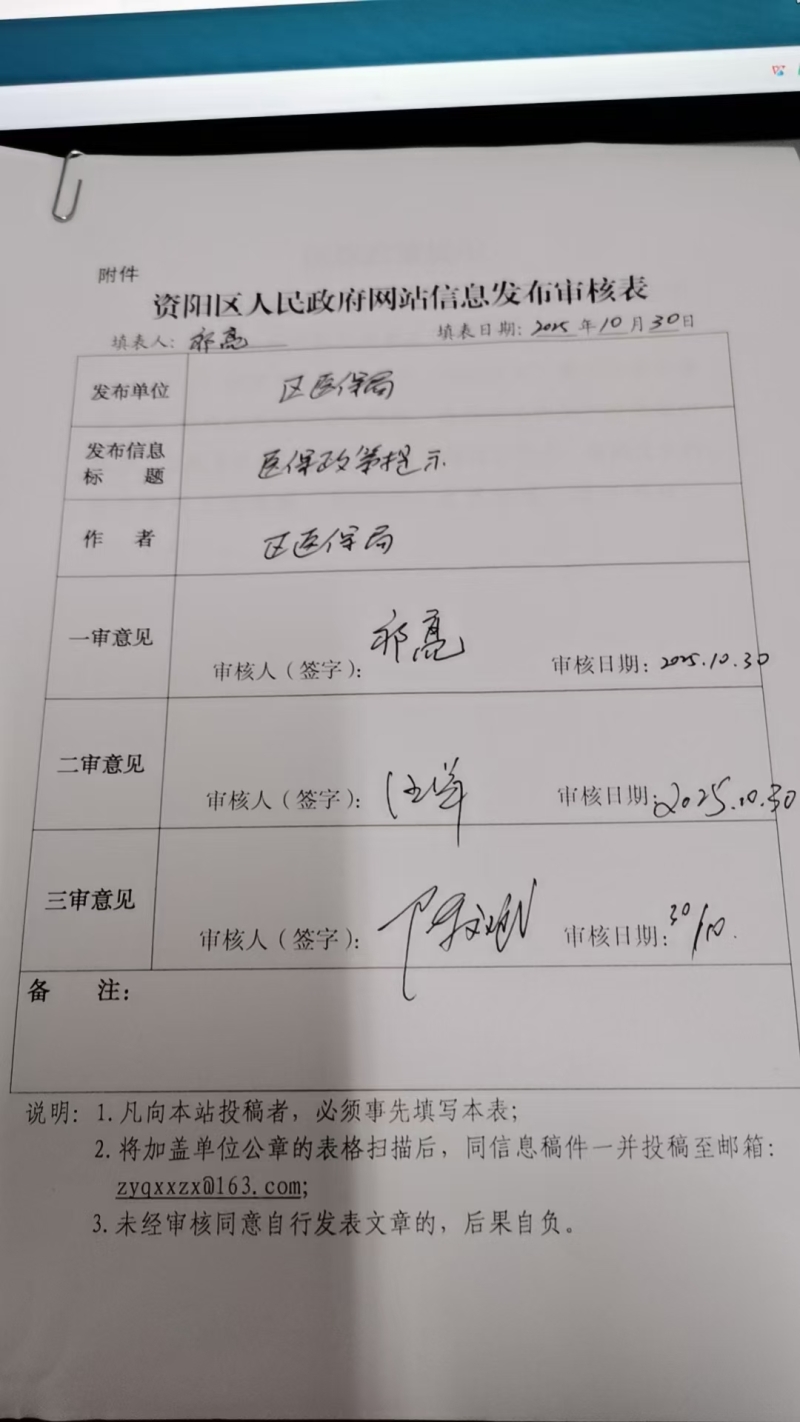 附件
资阳区人民政府网站信息发布审核表
填表人：祁亮 填表日期：2025年10月30日
发布单位 区医保局
发布信息标题 医保政策提示
作者 区医保局
一审意见 审核人（签字）：祁亮 审核日期：2025.10.30
二审意见 审核人（签字）：汪洋 审核日期：2025.10.30
三审意见 审核人（签字）： 审核日期：30/10.
备注：
说明：1.凡向本站投稿者，必须事先填写本表；
2.将加盖单位公章的表格扫描后，同信息稿件一并投稿至邮箱：
zyqxxzx@163.com;
3.未经审核同意自行发表文章的，后果自负。